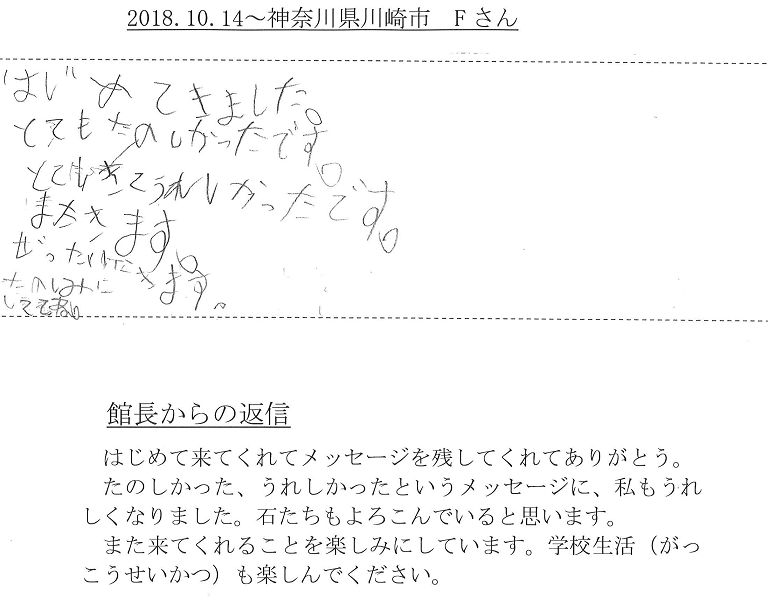 2018.10.14～神奈川県川崎市　Fさん
はじめてきました。
とてもたのしかったです。
とてもきてうれしかったです。
またきます。
ぜったいにきます。
たのしみに
してて
館長からの返信
はじめて来てくれてメッセージを残してくれてありがとう。
たのしかった、うれしかったというメッセージに、私もうれ
しくなりました。石たちもよろこんでいると思います。
また来てくれることを楽しみにしています。学校生活（がっ
こうせいかつ）も楽しんでください。